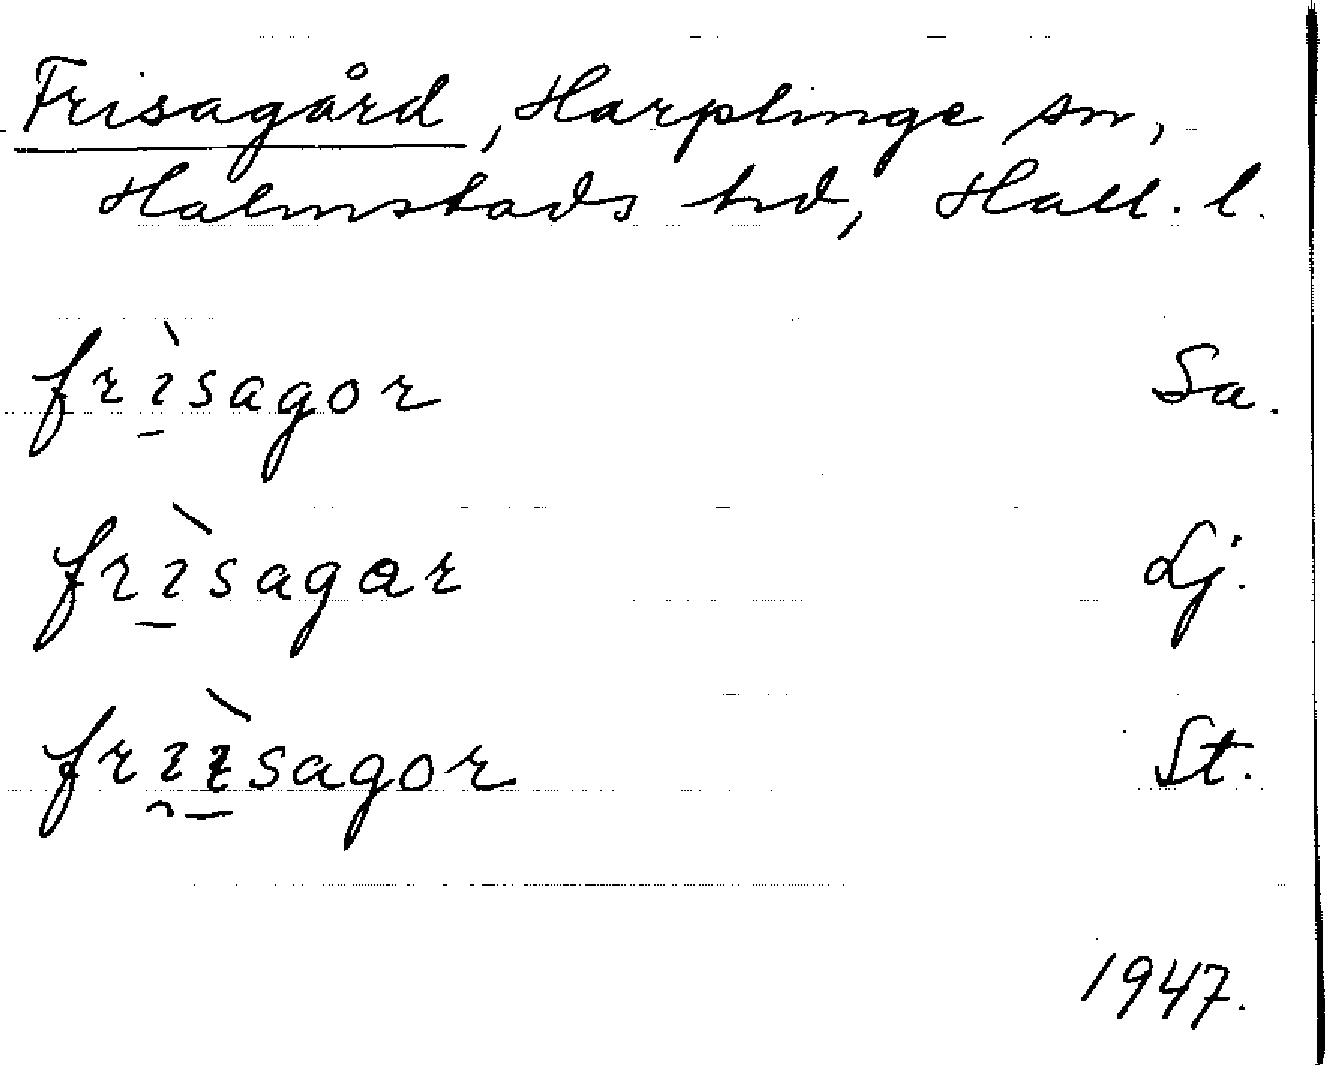 Frisagård, Harplinge sn,
Halmstads hd, Hall. l.
frı̱̀sagor Sa.
frı̱̀sagar Lj.
frı̯ı̱̀sagor St.
1947.